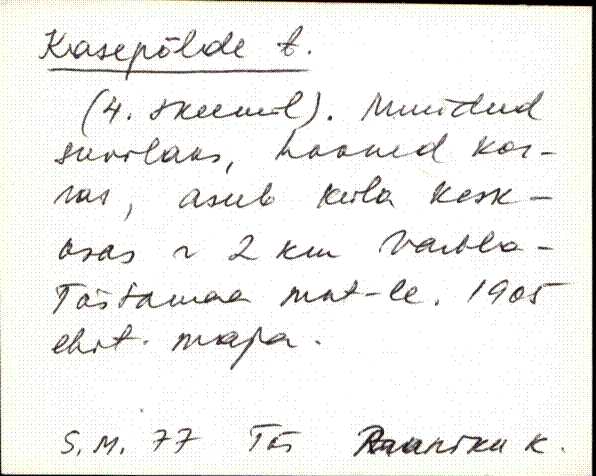 Kasepõlde t.
(4. skeemil). Muudud
suvilaks, hooned kor-
ras, asub küla kesk-
osas ~ 2 km Varbla-
Tõstamaa mnt-le. 1905
ehit. maja.
S.M. 77 Tõs Raaniku k.